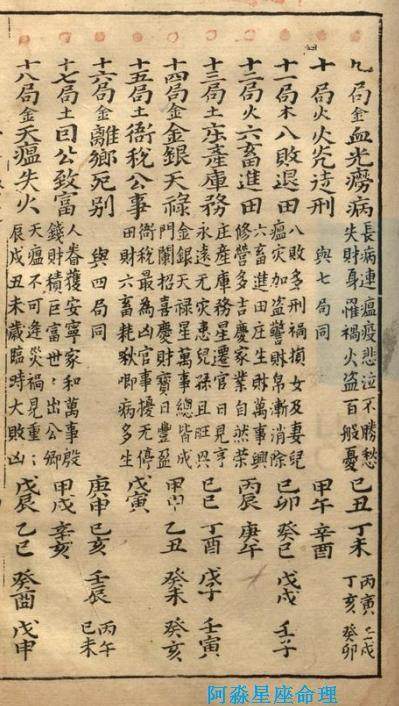 九局金血光癆病 長病連瘟疫悲泣不勝愁
失財身罹禍火盜百般憂 己丑 丁未 丙寅 壬戌
丁亥 癸卯
十局火火光徒刑 與七局同 甲午 辛酉
十一局木八敗退田 八敗多刑禍損女及妻兒
瘟灾加盜警財帛漸消除 己卯 癸巳 戊戌 壬子
十二局火六畜進田 六畜進田庄生財萬事興
修營多吉慶家業自然榮 丙辰 庚午
十三局土庄產庫務 庄產庫務星遷官日見亨
永遠无灾患兒祿且旺興 己巳 丁酉 戊子 壬寅
十四局金金銀天祿 金銀天祿星萬事總皆成
門闌招喜慶財寶日豐盈 甲申 乙丑 癸未 癸亥
十五局土衙稅公事 衙稅最為凶官事擾无停
田財六畜耗 病多生 戊寅
十六局金離鄉死别 與四局同 庚申 己亥 壬辰 丙午
己未
十七局土曰公致富 人眷獲安寧家和萬事殷
錢財積巨富世〻出公卿 甲戌 辛亥
十八局金天瘟失火 天瘟不可逢災禍見重〻
辰戌丑未歲臨時大敗凶 戊辰 乙巳 癸酉 戊申
阿淼星座命理